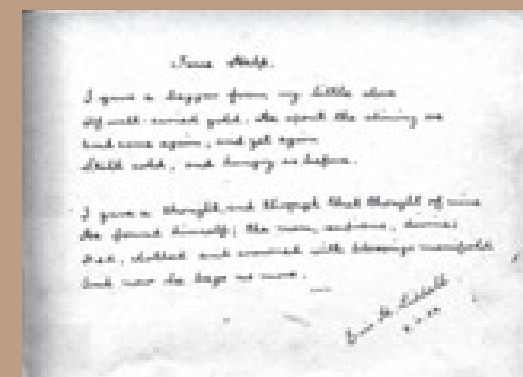 True Help.
I gave a beggar from my little store
Of well-earned gold. He spent the shining ore
And came again, and yet again
Still cold, and hungry as before.
I gave a thought, and through that thought of mine
He found himself; the man, supreme, divine;
Fed, clothed and crowned with blessings manifold
And now he begs no more.
Eric H. Liddell